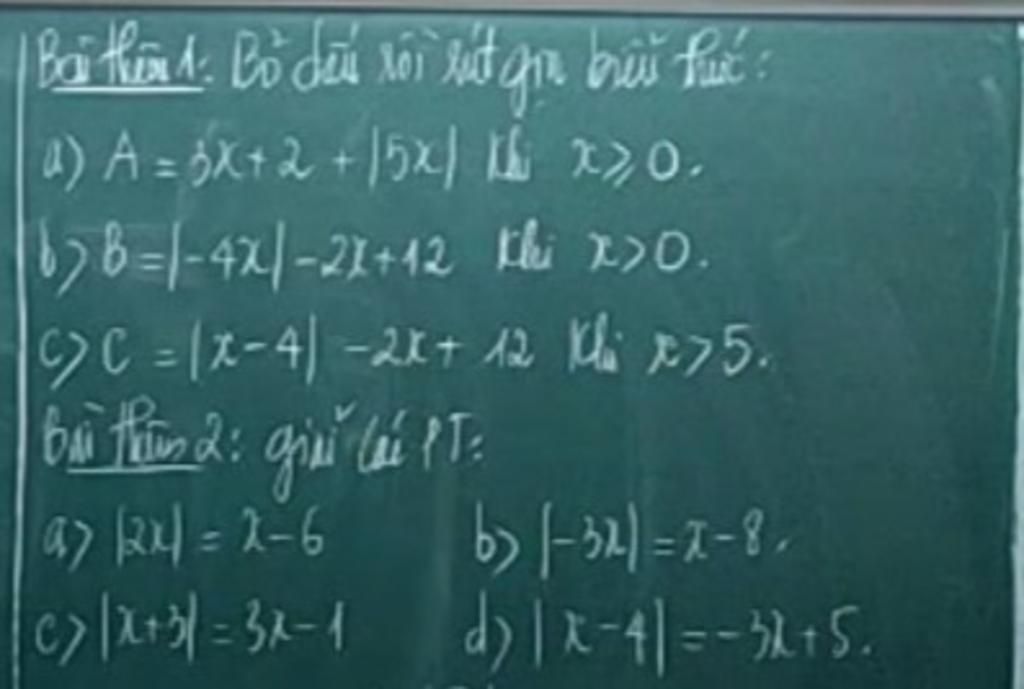 Bài thêm 1: Bỏ dấu rồi rút gọn biểu thức:
a) A = 3x + 2 + |5x| khi x ⩾ 0.
b) B = |-4x| - 2x + 12 khi x > 0.
c) C = |x - 4| - 2x + 12 khi x > 5.
Bài thêm 2: giải các PT:
a) |2x| = x - 6 b) |-3x| = x - 8.
c) |x + 3| = 3x - 1 d) |x - 4| = -3x + 5.